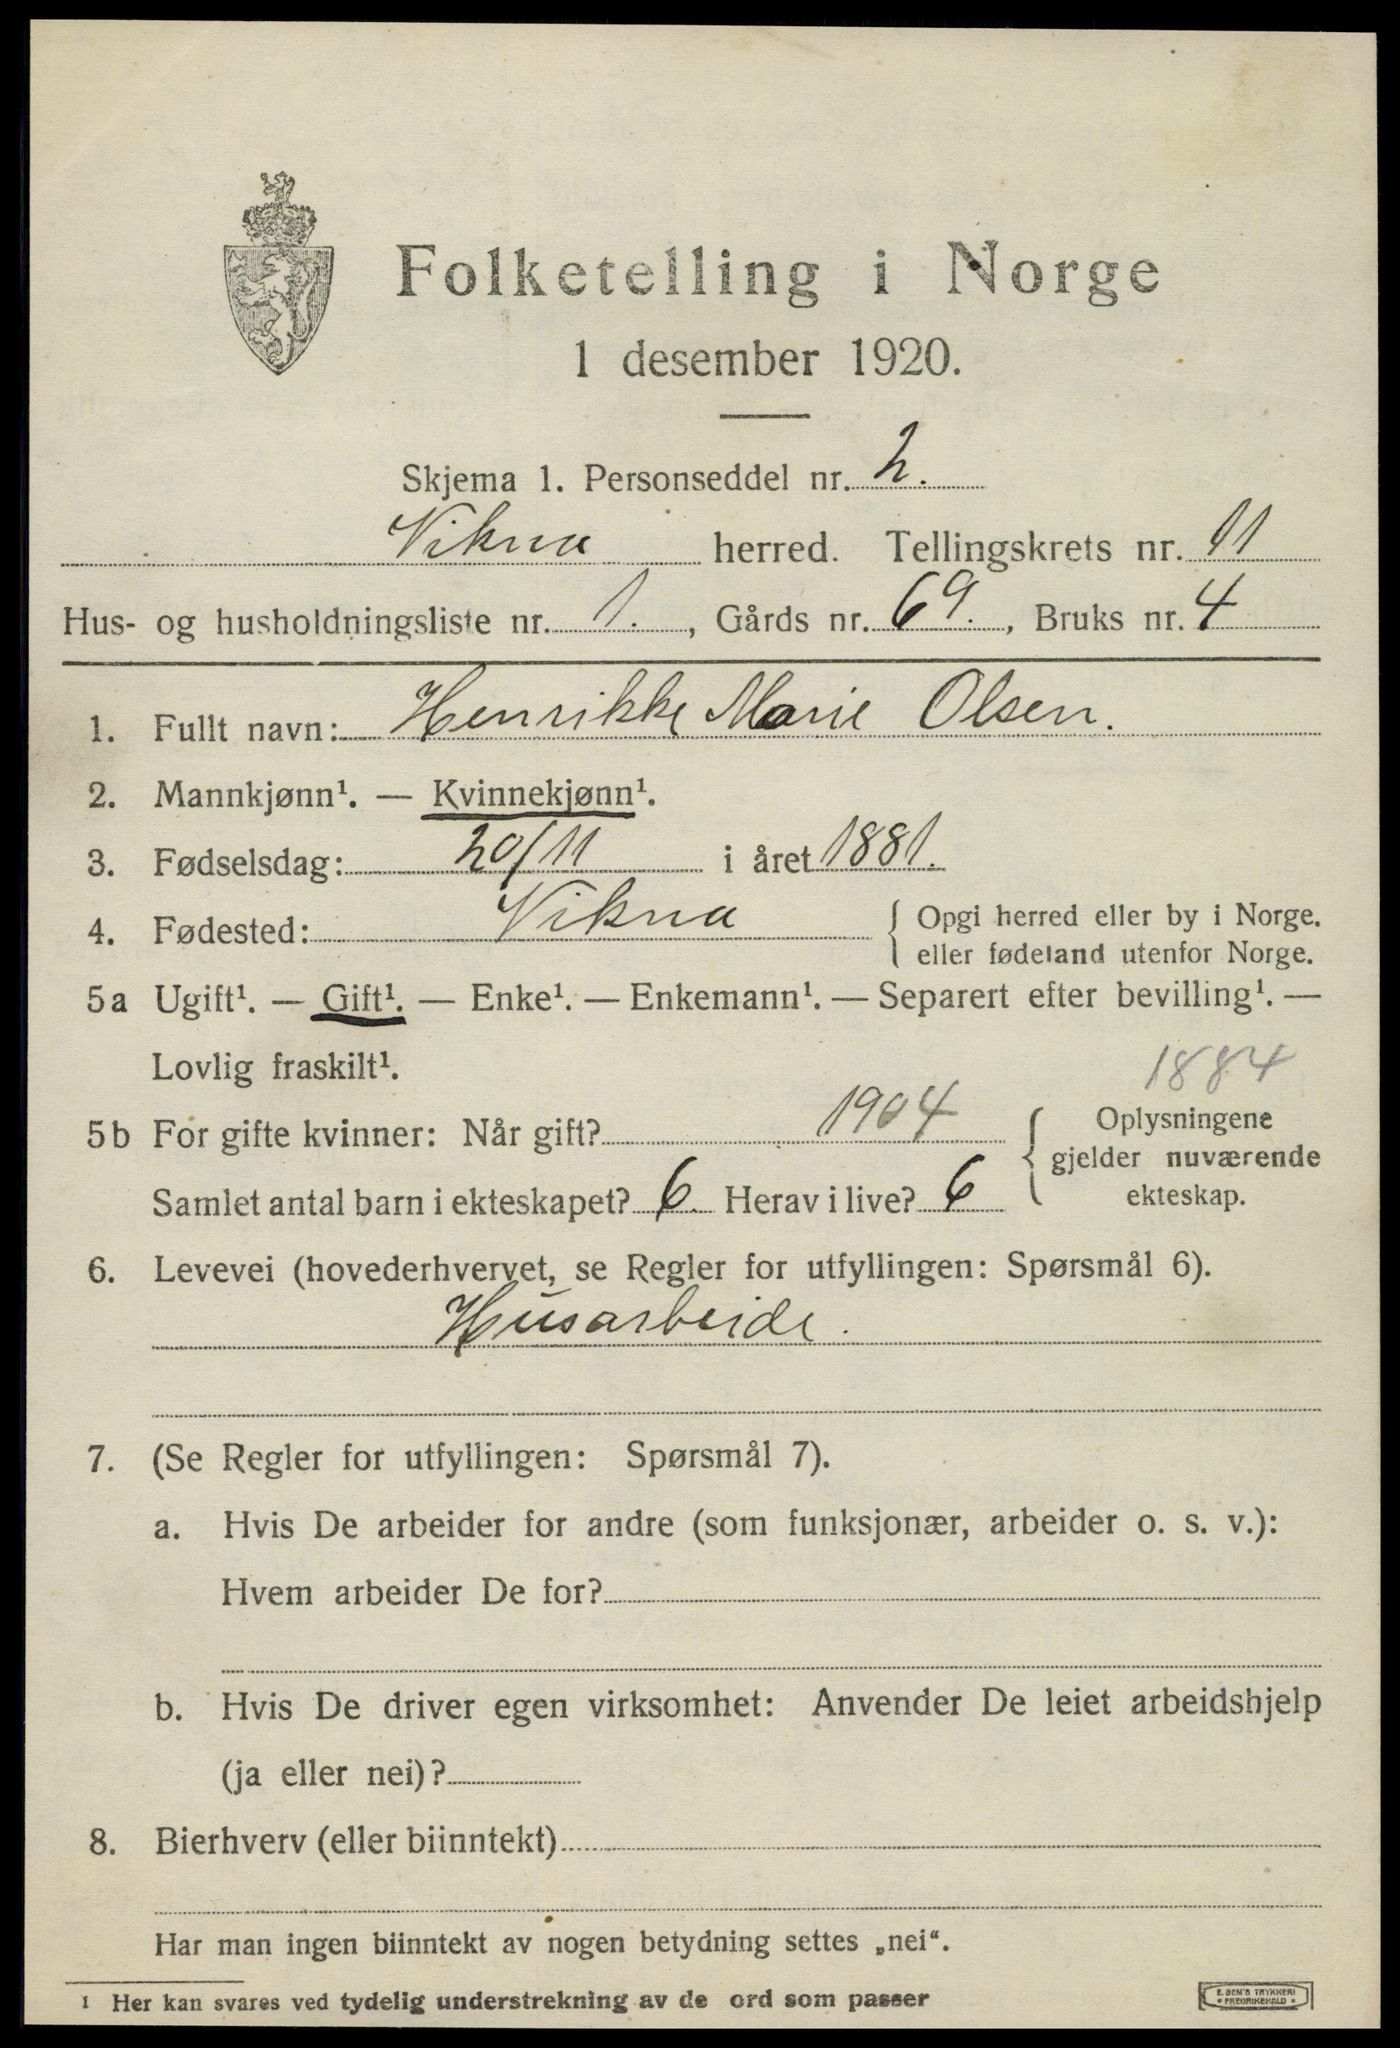 Folketelling i Norge
1 desember 1920.
Skjema 1. Personseddel nr. 2.
Vikna herred. Tellingskrets nr. 11
Hus- og husholdningsliste nr. 1., Gårds nr. 69., Bruks nr. 4
1. Fullt navn: Henrikke Marie Olsen.
2. Mannkjønn¹. — Kvinnekjønn¹.
3. Fødselsdag: 20/11 i året 1881.
4. Fødested: Vikna { Opgi herred eller by i Norge.
eller fødeland utenfor Norge.
5a Ugift¹. — Gift¹. — Enke¹. — Enkemann¹. — Separert efter bevilling¹. —
Lovlig fraskilt¹.
1884
5b For gifte kvinner: Når gift? 1904
Samlet antal barn i ekteskapet? 6. Herav i live? 6
{ Oplysningene
gjelder nuværende
ekteskap.
6. Levevei (hovederhvervet, se Regler for utfyllingen: Spørsmål 6).
Husarbeide.
7. (Se Regler for utfyllingen: Spørsmål 7).
a. Hvis De arbeider for andre (som funksjonær, arbeider o. s. v.):
Hvem arbeider De for?
b. Hvis De driver egen virksomhet: Anvender De leiet arbeidshjelp
(ja eller nei)?
8. Bierhverv (eller biinntekt)
Har man ingen biinntekt av nogen betydning settes „nei“.
1 Her kan svares ved tydelig understrekning av de ord som passer
E. SEM'S TRYKKERI
• FREDRIKSHALD •